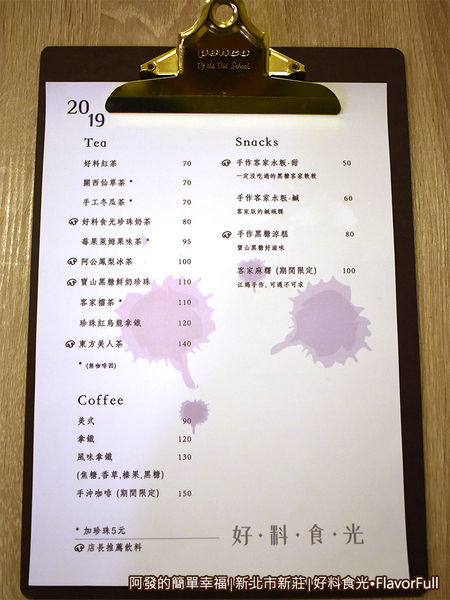 penco
Up the Old School
2019
Tea
好料紅茶 70
關西仙草茶 * 70
手工冬瓜茶 * 70
好料食光珍珠奶茶 80
莓果萊姆果味茶 * 95
阿公鳳梨冰茶 100
寶山黑糖鮮奶珍珠 110
客家擂茶 * 110
珍珠紅烏龍拿鐵 120
東方美人茶 140
* (無咖啡因)
Coffee
美式 90
拿鐵 120
風味拿鐵 130
(焦糖,香草,榛果,黑糖)
手沖咖啡 (期間限定) 150
* 加珍珠5元
店長推薦飲料
Snacks
手作客家水粄-甜 50
一定沒吃過的黑糖客家軟軟
手作客家水粄-鹹 60
客家版的鹹碗粿
手作黑糖涼糕 80
寶山黑糖好滋味
客家麻糬 (期間限定) 100
江媽手作, 可遇不可求
好·料·食·光
阿發的簡單幸福|新北市新莊|好料食光•FlavorFull